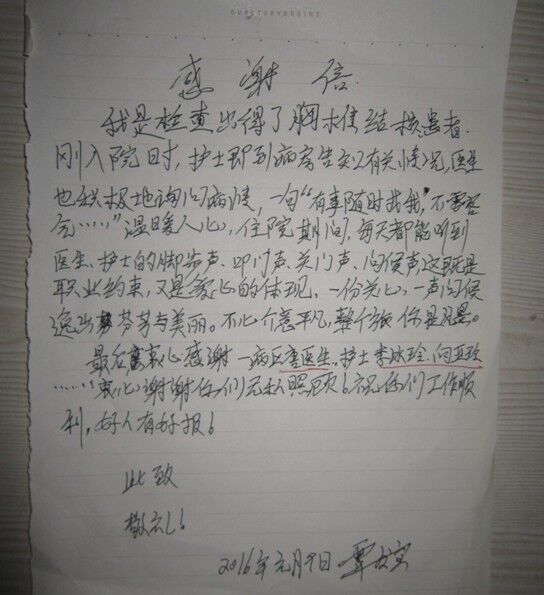 OURSTORYBEGINS
感谢信
我是检查出得了胸椎结核患者.
刚入院时,护士即到病房告知有关情况,医生
也积极地询问病情,一句“有事随时找我”,不要客
气……”温暖人心,住院期间,每天都能听到
医生、护士的脚步声、叩门声、关门声、问候声这既是
职业约束,又是爱心的体现,一份关心,一声问候
逸出芬芳与美丽。不必介意平凡,
最后衷心感谢一病区李医生、护士李冰玲、向亚玲
……衷心谢谢你们无私照顾!祝你们工作顺
利,好人有好报!
此致
敬礼!
2016年元月9日 覃